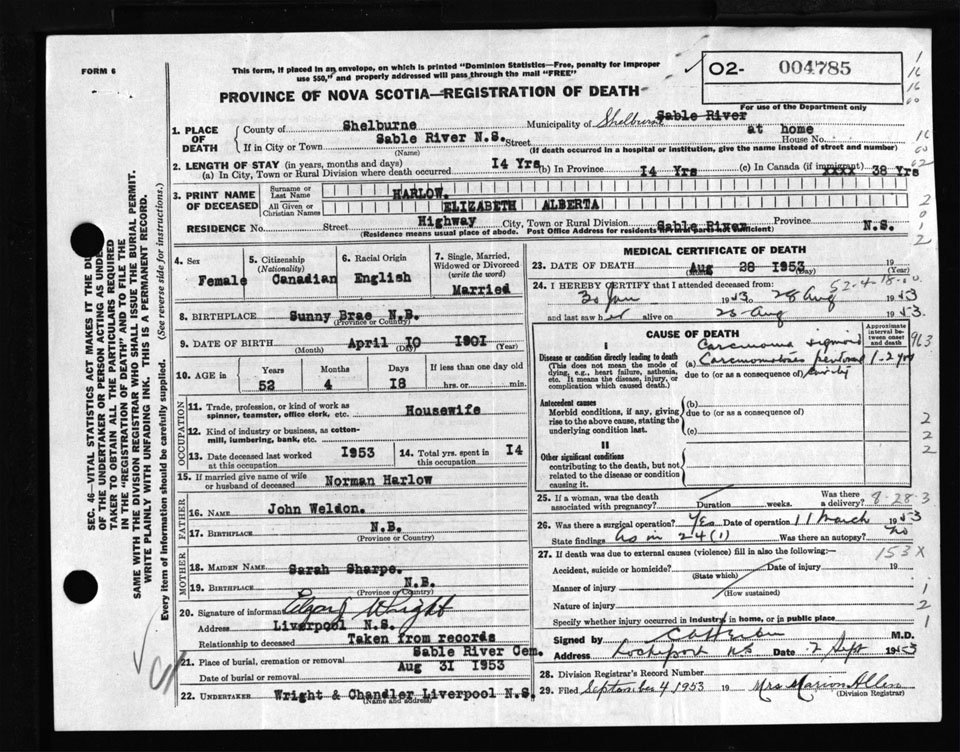 FORM 6
This form, if placed in an envelope, on which is printed "Dominion Statistics—Free, penalty for improper
use $50," and properly addressed will pass through the mail "FREE"
O2- 004785
For use of the Department only
PROVINCE OF NOVA SCOTIA—REGISTRATION OF DEATH
1. PLACE OF DEATH
County of Shelburne Municipality of Shelburne Sable River
If in City or Town Sable River N.S. Street at home House No.
(Name) (If death occurred in a hospital or institution, give the name instead of street and number)
2. LENGTH OF STAY (in years, months and days)
(a) In City, Town or Rural Division where death occurred 14 Yrs (b) In Province 14 Yrs (c) In Canada (if immigrant) xxxx 38 Yrs
3. PRINT NAME OF DECEASED
Surname or Last Name HARLOW.
All Given or Christian Names ELIZABETH ALBERTA
RESIDENCE No. Street Highway City, Town or Rural Division Sable River Province N.S.
(Residence means usual place of abode. Post Office Address for residents in rural
4. Sex Female
5. Citizenship (Nationality) Canadian
6. Racial Origin English
7. Single, Married, Widowed or Divorced (write the word) Married
8. BIRTHPLACE Sunny Brae N.B.
(Province or Country)
9. DATE OF BIRTH April 10 1901
(Month) (Day) (Year)
10. AGE Years 52 Months 4 Days 18 If less than one day old hrs. or min.
OCCUPATION
11. Trade, profession, or kind of work as spinner, teamster, office clerk, etc. Housewife
12. Kind of industry or business, as cotton-mill, lumbering, bank, etc.
13. Date deceased last worked at this occupation 1953
14. Total yrs. spent in this occupation 14
15. If married give name of wife or husband of deceased Norman Harlow
FATHER
16. NAME John Weldon.
17. BIRTHPLACE N.B.
(Province or Country)
MOTHER
18. MAIDEN NAME Sarah Sharpe.
19. BIRTHPLACE N.B.
(Province or Country)
20. Signature of informant Edgar J Wright
Address Liverpool N.S.
Relationship to deceased Taken from records
21. Place of burial, cremation or removal Sable River Cem.
Date of burial or removal Aug 31 1953
22. UNDERTAKER Wright & Chandler Liverpool N.S.
(Name and address)
MEDICAL CERTIFICATE OF DEATH
23. DATE OF DEATH Aug 28 1953 19
(Day) (Year)
24. I HEREBY CERTIFY that I attended deceased from:
52-4-18
30 Jan 1953 28 Aug 1953
and last saw her alive on 28 Aug 1953.
CAUSE OF DEATH
Approximate interval between onset and death
I
Disease or condition directly leading to death
(This does not mean the mode of dying, e.g., heart failure, asthenia, etc. It means the disease, injury, or complication which caused death.)
Carcinoma sigmoid
(a) Carcinomatosis peritoneal 1-2 yrs
due to (or as a consequence of)
Antecedent causes
Morbid conditions, if any, giving rise to the above cause, stating the underlying condition last.
(b)
due to (or as a consequence of)
(c)
II
Other significant conditions
contributing to the death, but not related to the disease or condition causing it.
25. If a woman, was the death associated with pregnancy? Duration weeks. Was there a delivery? 8-28-3
26. Was there a surgical operation? Yes Date of operation 11 March 1953
State findings As in 24(1) Was there an autopsy? No
27. If death was due to external causes (violence) fill in also the following:— 153X
Accident, suicide or homicide? Date of injury 19
(State which)
Manner of injury
(How sustained)
Nature of injury
Specify whether injury occurred in industry, in home, or in public place
Signed by M.D.
Address Lockeport NS Date 2 Sept 1953
28. Division Registrar's Record Number
29. Filed September 4 1953 19 Mrs Marion Allen
(Division Registrar)
SEC. 46—VITAL STATISTICS ACT MAKES IT THE
OF THE UNDERTAKER OR PERSON ACTING AS
TAKER TO OBTAIN ALL THE PARTICULARS REQUIRED
IN THE "REGISTRATION OF DEATH" AND TO FILE THE
SAME WITH THE DIVISION REGISTRAR WHO SHALL ISSUE THE BURIAL PERMIT.
WRITE PLAINLY WITH UNFADING INK. THIS IS A PERMANENT RECORD.
Every item of information should be carefully supplied. (See reverse side for instructions.)